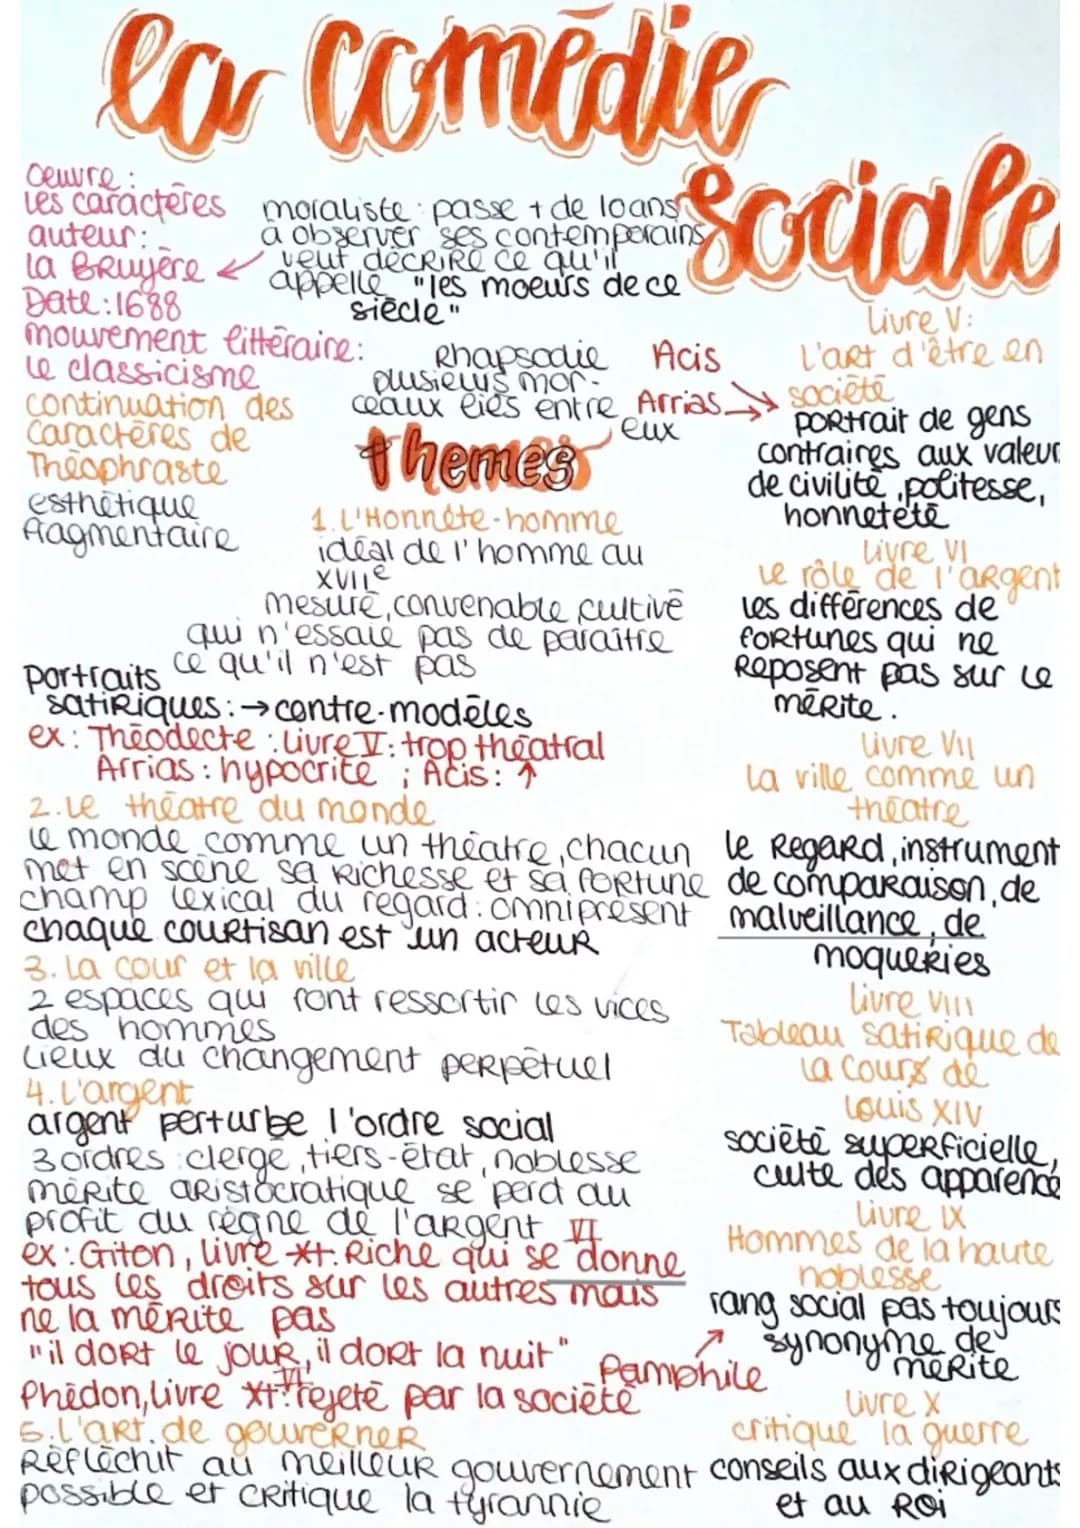 la comédie
sociale
Oeuvre :
Les caractères
auteur :
La Bruyère
Date : 1688
mouvement littéraire :
le classicisme
continuation des
Caractères de
Théophraste
esthétique
fragmentaire
moraliste : passe + de 10 ans
à observer ses contemporains
veut décrire ce qu'il
appelle "les moeurs de ce
siècle"
Rhapsodie
plusieurs mor-
ceaux liés entre
eux
Acis
Arrias
themes
1. L'Honnête-homme
idéal de l'homme au
XVIIe
mesuré, convenable, cultivé
qui n'essaie pas de paraitre
ce qu'il n'est pas
Portraits
satiriques : → contre-modèles
ex : Théodecte : Livre V : trop théatral
Arrias : hypocrite ; Acis : ↑
2. Le théatre du monde
le monde comme un théatre, chacun
met en scène sa richesse et sa fortune
champ lexical du regard : omniprésent
chaque courtisan est un acteur
3. La cour et la ville
2 espaces qui font ressortir les vices
des hommes
Lieux du changement perpétuel
4. L'argent
argent perturbe l'ordre social
3 ordres : clergé, tiers-état, noblesse
mérite aristocratique se perd au
profit du règne de l'argent
ex : Giton, livre VI : Riche qui se donne
tous les droits sur les autres mais
ne la mérite pas
"il dort le jour, il dort la nuit"
Phédon, livre VI : rejeté par la société
5. L'art de gouverner
Réfléchit au meilleur gouvernement
possible et critique la tyrannie
Livre V :
L'art d'être en
société
portrait de gens
contraires aux valeur
de civilité, politesse,
honneteté
Livre VI
Le rôle de l'argent
les différences de
fortunes qui ne
reposent pas sur le
mérite.
Livre VII
La ville comme un
théatre
le Regard, instrument
de comparaison, de
malveillance, de
moqueries
Livre VIII
Tableau satirique de
la Cour de
Louis XIV
société superficielle,
culte des apparence
Livre IX
Hommes de la haute
noblesse
rang social pas toujours
synonyme de
mérite
Pamphile
Livre X
critique la guerre
conseils aux dirigeants
et au Roi